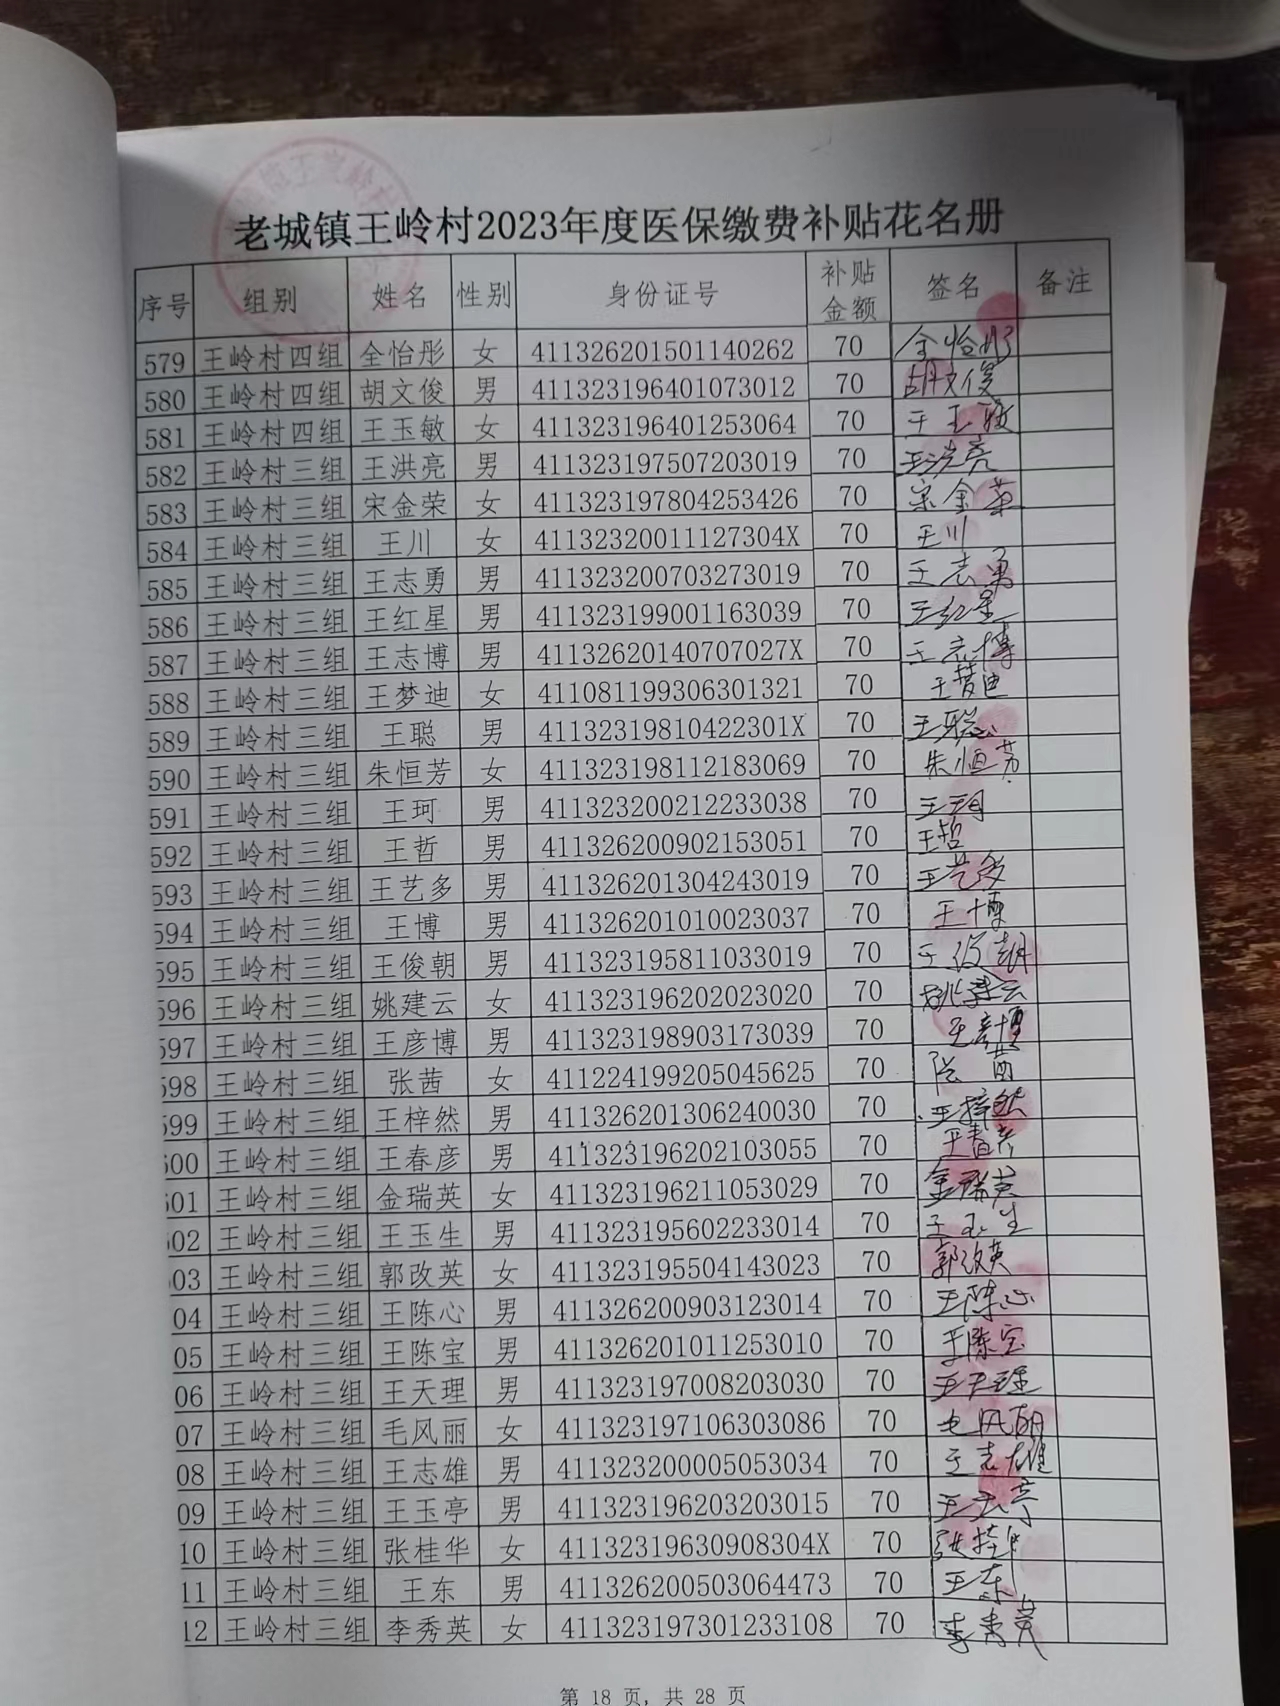 老城镇王岭村2023年度医保缴费补贴花名册
序号 组别 姓名 性别 身份证号 补贴金额 签名 备注
579 王岭村四组 全怡彤 女 411326201501140262 70 全怡彤
580 王岭村四组 胡文俊 男 411323196401073012 70 胡文俊
581 王岭村四组 王玉敏 女 411323196401253064 70 王玉敏
582 王岭村三组 王洪亮 男 411323197507203019 70 王洪亮
583 王岭村三组 宋金荣 女 411323197804253426 70 宋金荣
584 王岭村三组 王川 女 41132320011127304X 70 王川
585 王岭村三组 王志勇 男 411323200703273019 70 王志勇
586 王岭村三组 王红星 男 411323199001163039 70 王红星
587 王岭村三组 王志博 男 41132620140707027X 70 王志博
588 王岭村三组 王梦迪 女 411081199306301321 70 王梦迪
589 王岭村三组 王聪 男 41132319810422301X 70 王聪
590 王岭村三组 朱恒芳 女 411323198112183069 70 朱恒芳
591 王岭村三组 王珂 男 411323200212233038 70 王珂
592 王岭村三组 王哲 男 411326200902153051 70 王哲
593 王岭村三组 王艺多 男 411326201304243019 70 王艺多
594 王岭村三组 王博 男 411326201010023037 70 王博
595 王岭村三组 王俊朝 男 411323195811033019 70 王俊朝
596 王岭村三组 姚建云 女 411323196202023020 70 姚建云
597 王岭村三组 王彦博 男 411323198903173039 70 王彦博
598 王岭村三组 张茜 女 411224199205045625 70 张茜
599 王岭村三组 王梓然 男 411326201306240030 70 王梓然
600 王岭村三组 王春彦 男 411323196202103055 70 王春彦
01 王岭村三组 金瑞英 女 411323196211053029 70 金瑞英
02 王岭村三组 王玉生 男 411323195602233014 70 王玉生
03 王岭村三组 郭改英 女 411323195504143023 70 郭改英
04 王岭村三组 王陈心 男 411326200903123014 70 王陈心
05 王岭村三组 王陈宝 男 411326201011253010 70 王陈宝
06 王岭村三组 王天理 男 411323197008203030 70 王天理
07 王岭村三组 毛风丽 女 411323197106303086 70 毛风丽
08 王岭村三组 王志雄 男 411323200005053034 70 王志雄
09 王岭村三组 王玉亭 男 411323196203203015 70 王玉亭
10 王岭村三组 张桂华 女 41132319630908304X 70 张桂华
11 王岭村三组 王东 男 411326200503064473 70 王东
12 王岭村三组 李秀英 女 411323197301233108 70 李秀英
第 18 页, 共 28 页